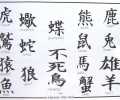 虎
鷲
猿
魚
蠍
蛇
狼
蝶
不死鳥
熊
鼠
馬
蟹
鹿
兎
雄羊